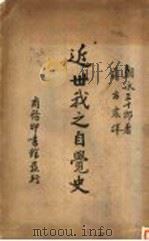 朝永三十郎著
蔣方震譯
近世我之自覺史
商務印書館發行